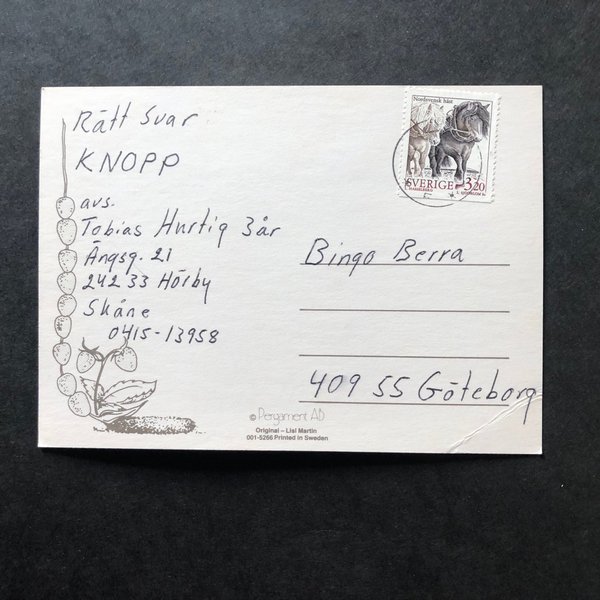 Rätt Svar
KNOPP
avs.
Tobias Hurtig 3år
Ängsg. 21
242 33 Hörby
Skåne
0415-13958
Nordsvensk häst
SVERIGE 3,20
Bingo Berra
409 55 Göteborg
© Pergament AB
Original – Lisl Martin
001-5266 Printed in Sweden